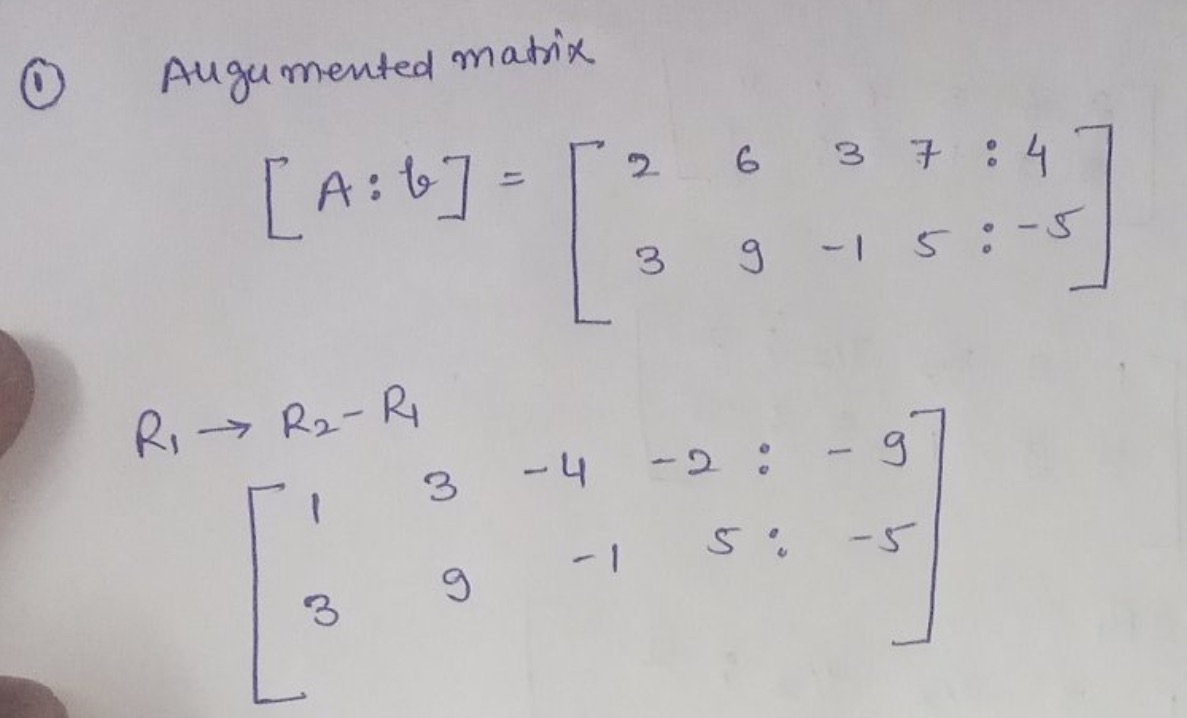 ① Augumented matrix
[A:b] = [ 2 6 3 7 : 4
3 9 -1 5 : -5 ]
R₁ → R₂ - R₁
[ 1 3 -4 -2 : -9
3 9 -1 5 : -5 ]